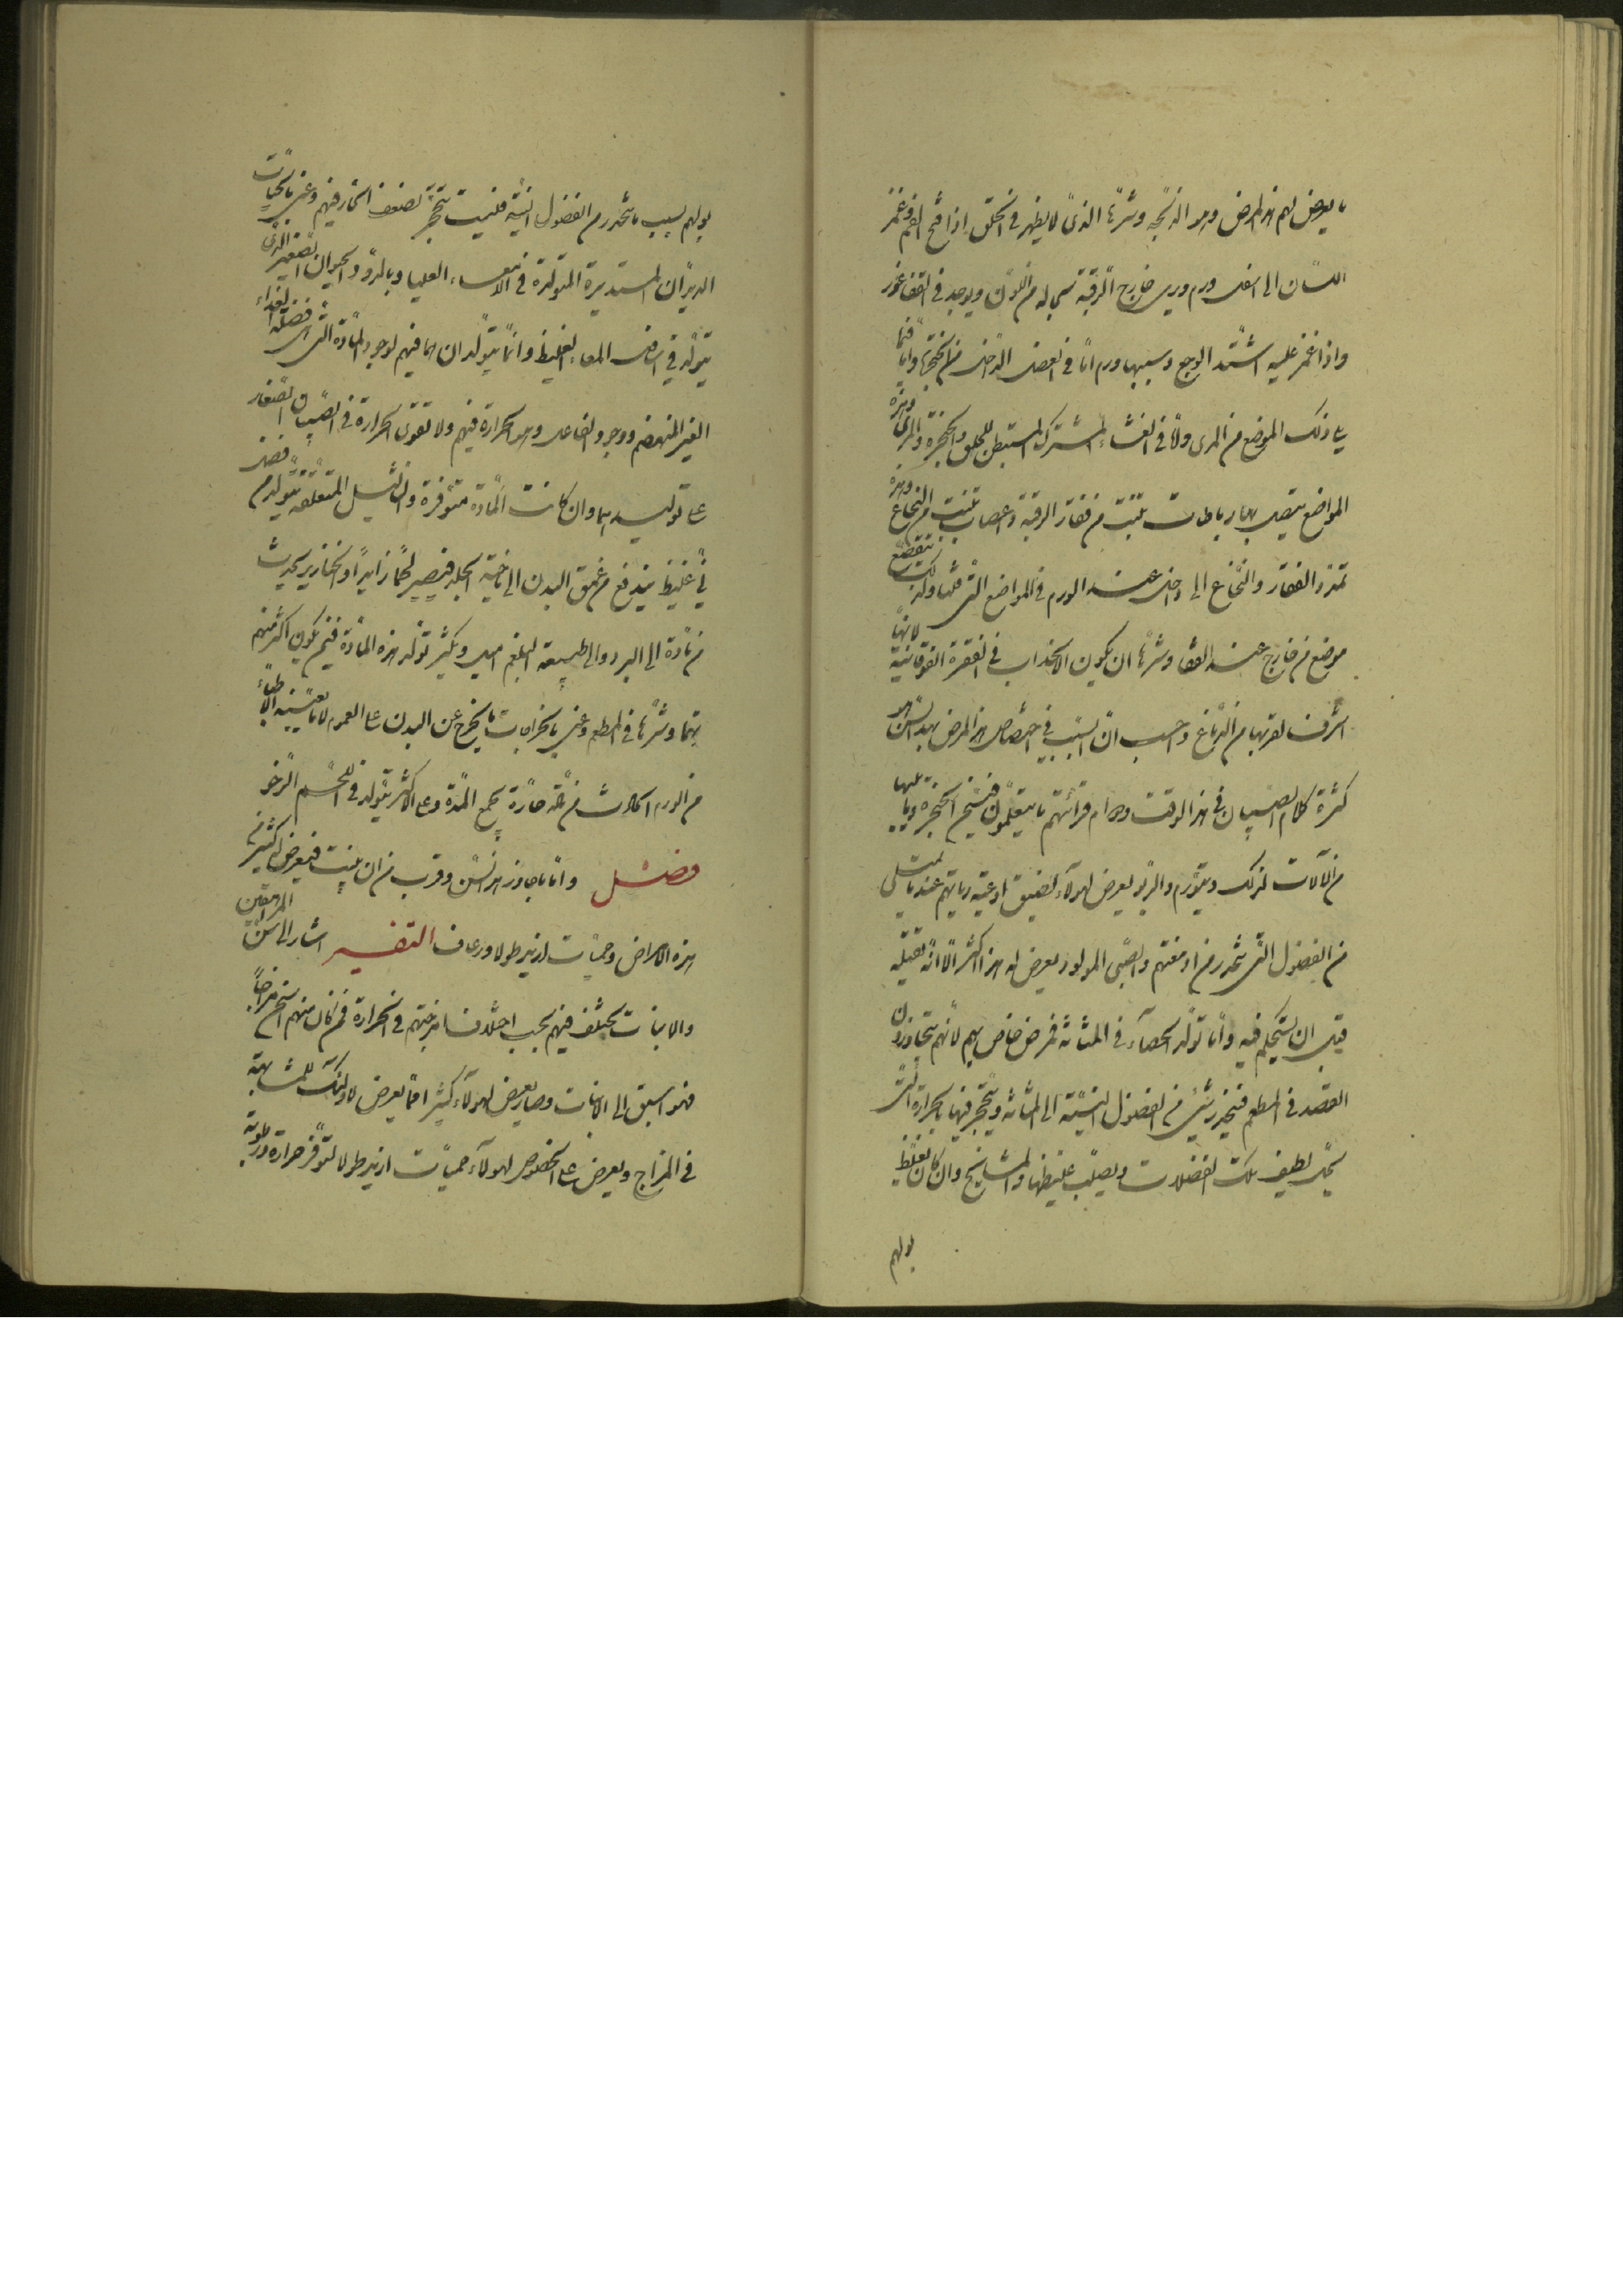 ما يعرض لهم هذا المرض وهو الذبحة وشرّها الذى لا يظهر فى الحلق اذا فتح الفم وغمز
اللسان الى اسفل ورم ويرى خارج الرقبة بحاله من اللون ويوجد فى القفا غور
واذا غمز عليه اشتد الوجع وسببها ورم امّا فى العضل الداخل من الحنجرة وامّا فيما
يلى ذلك الموضع من المرى وامّا فى الغشاء المشترك المستبطن للحلق والحنجرة والمرى وهذه
المواضع يتصل بها رباطات تنبت من فقار الرقبة واعصاب تنبت من النخاع وهذه
تمدد الفقار والنخاع الى داخل عند الورم فى المواضع التى قلنا ولذلك يتقصع
موضع من خارج عند القفا وشرّها ان يكون الانجذاب فى الفقرة الفوقانية لانها
اشرف لقربها من الدماغ واحسب ان السبب فى اختصاص هذا المرض بهذا السن هو
كثرة كلام الصبيان فى هذا الوقت ودوام قرائتهم ما يتعلمون فتسخن الحنجرة وما يليها
من الآلات لذلك ويتورم والربو يعرض لهولآء لضيق اوعية رياتهم عند ما يمتلى
من الفضول التى تنحدر من ادمغتهم والصبى المولود يعرض له هذا اكثر الا انه يقتله
قبل ان يستحكم فيه وامّا تولّد الحصآء فى المثانة فمرض خاص بهم لانهم يتجاوزون
القصد فى المطعم فينحدر شئ من الفضول النيّة الى المثانة ويتحجر فيها بالحرارة التى
تحلّل لطيف تلك الفضلات ويصلّب غليظها والمشايخ وان كان يغلظ
بولهم
بولهم بسبب ما ينحدر من الفضول النيّة فليست تتحجر لضعف الحار فيهم وعنى بالحيّات
الديدان المستديرة المتولدة فى الامعاء العليا وبالدود الحيوان الصغير الذى
يتولّد فى اسافل المعاء الغليظ وانما يتولّدان هما فيهم لوجود المادة التى هى فضلة الغذاء
الغير المنهضم ووجود الفاعل وهو الحرارة فيهم ولا تقوى الحرارة فى الصبيان الصغار
على توليدهما وان كانت المادة متوفرة والثآليل المتعلّقة يتولّد من فضل
نىّ غليظ يندفع من عمق البدن الى ناحية الجلد فيصير لحما زايدا والخنازير يحدث
من مادة الى البرد والى طبيعة البلغم اميل ويكثر تولّد هذه المادة فيمن يكون اكثر منهم
نهما وشرها فى المطعم وعنى بالخراجات ما يخرج عن البدن على العموم لا ما يعنيه الاطباء
من الورم الحادث من مادة حارة يجمع المدة وعلى الاكثر يتولد فى اللحم الرخو
فصل وامّا ما جاوز هذا السن وقرب من ان ينبت فيعرض له كثير من
هذه الامراض وحميّات ازيد طولا ورعاف التفسير اشار الى سن المراهقين
والانبات يختلف فيهم بحسب اختلاف امزجتهم فى الحرارة فمن كان منهم اسخن مزاجا
فهو اسبق الى الانبات وصار يعرض لهولآء كثير ممّا يعرض لاولئك للمشابهة
فى المزاج ويعرض على الخصوص لهولآء حميّات ازيد طولا لتوفّر حرارة ورطوبة